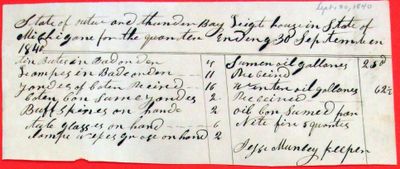 Sept. 30, 1840
State of and thunder Bay Leigt house in State of
Michigane for the quarter Ending 30 September
1840
in Bad onder 5 Sumer oil gallones
Lampes in Badeonder 11 Received
yardes of boten Received 16 winter oil gallones 62½
boten bon Sumed yardes 2 Received
Buff skines on hande 2 oil bon Sumed par
tute glasses on hand 6 Nite fire quartes
on hand 2 Jesse Munley keeper